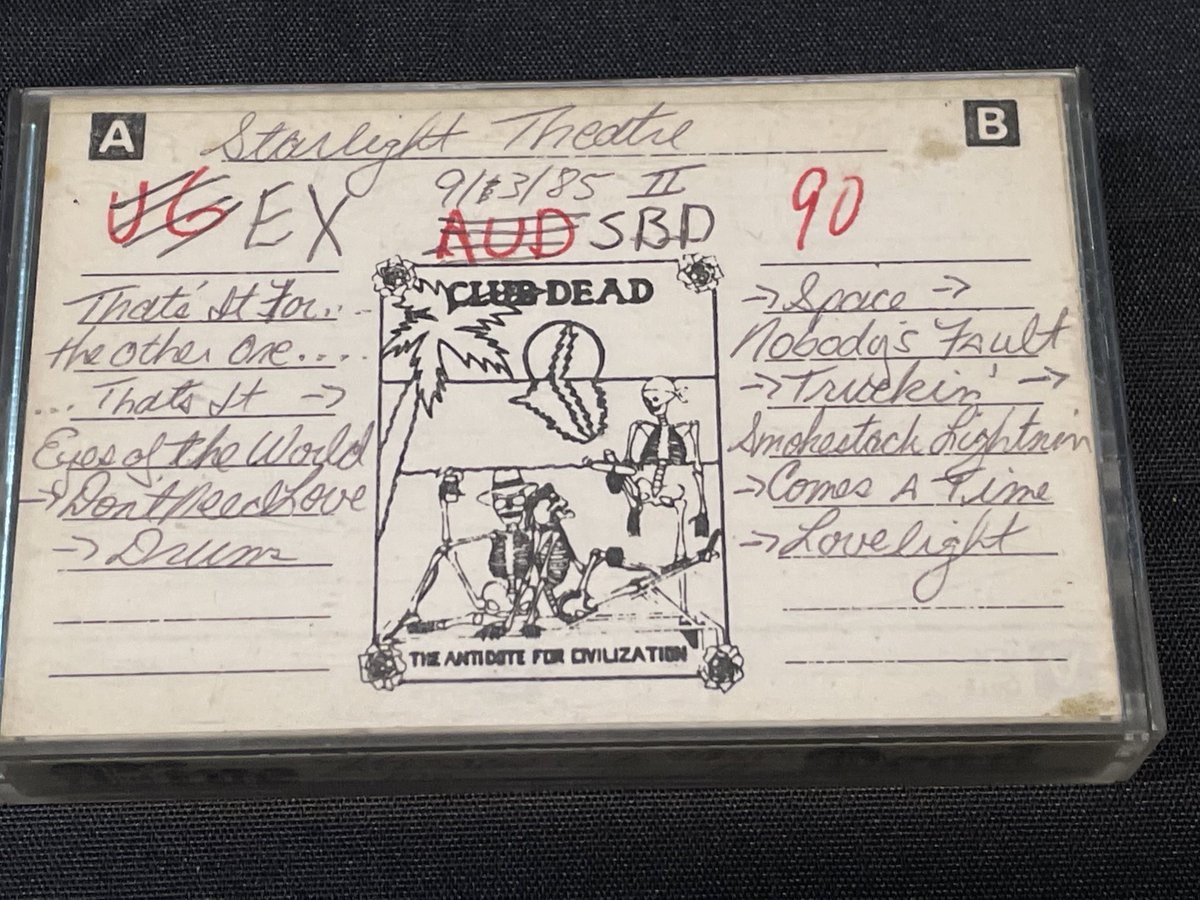 A
B
Starlight Theatre
9/3/85 II
VG EX
AUD SBD
90
That's It For...
the other One....
... That's It ->
Eyes of the World
-> Don't Need Love
-> Drums
CLUB DEAD
THE ANTIDOTE FOR CIVILIZATION
-> Space ->
Nobody's Fault
-> Truckin' ->
Smokestack Lightnin
-> Comes A Time
-> Lovelight